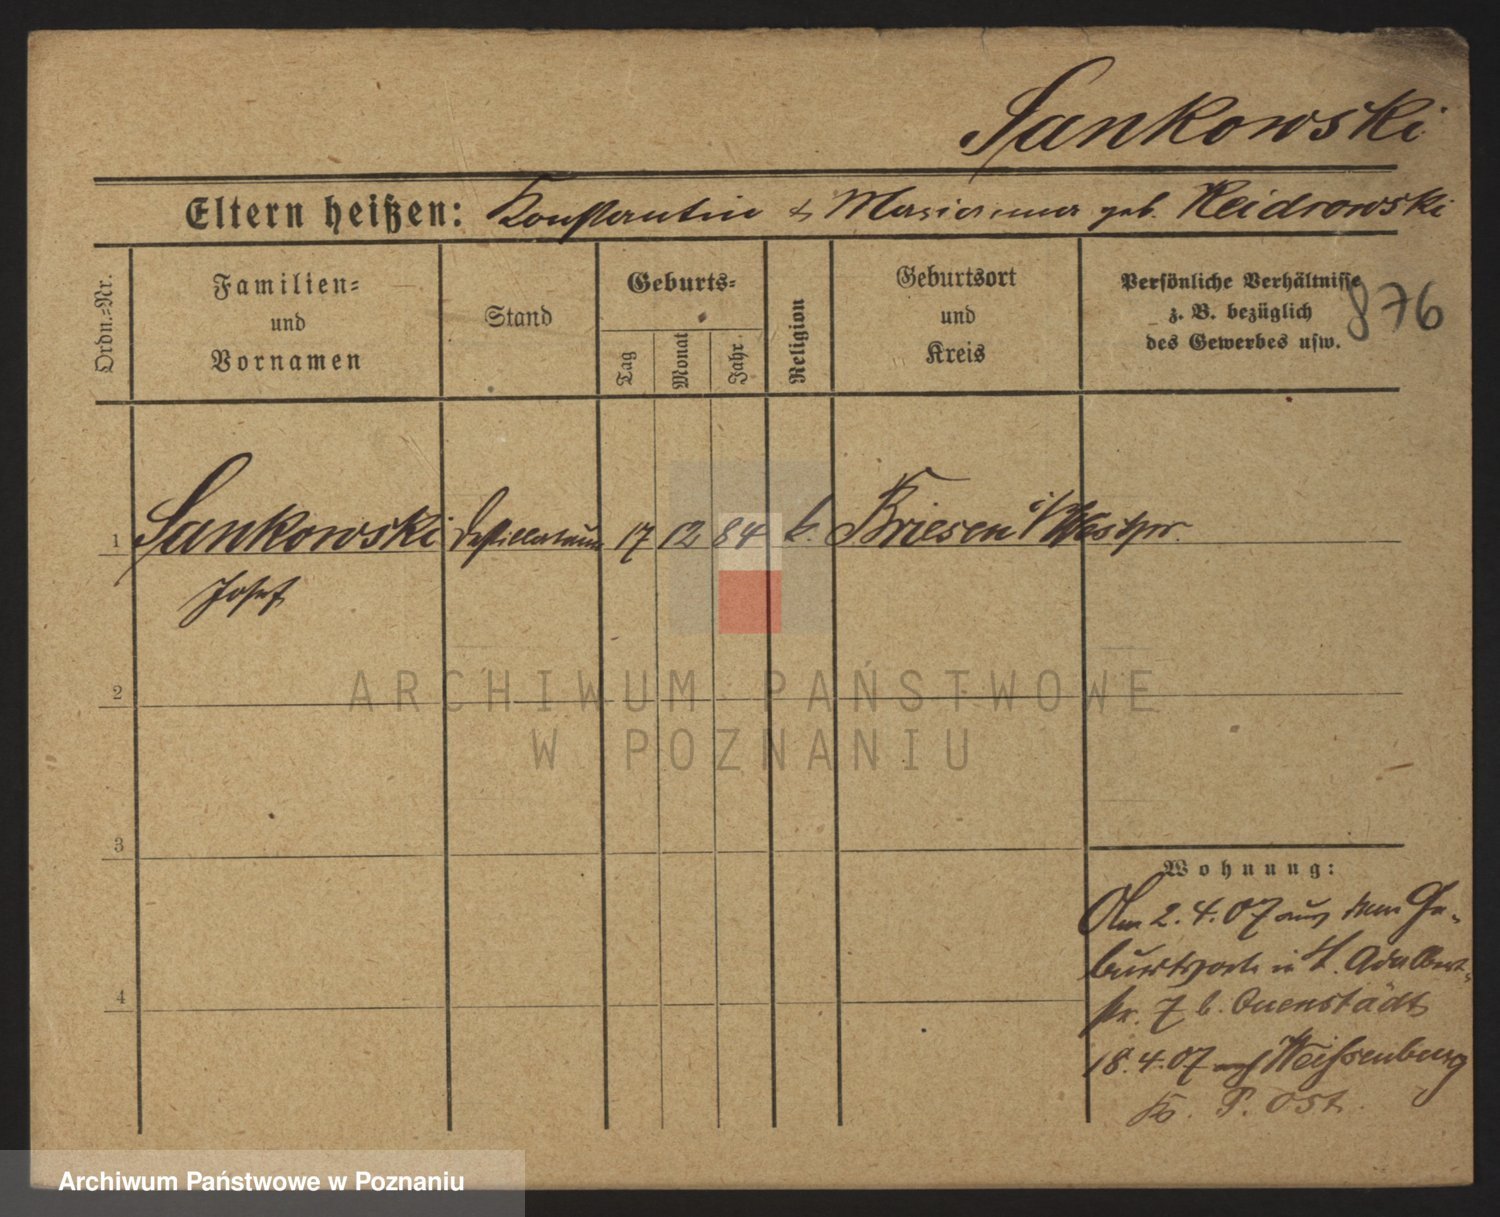 Sankowski
Eltern heißen: Konstantin & Marianna geb. Heidrowski
Ordn.-Nr.
Familien-
und
Vornamen
Stand
Geburts-
Tag
Monat
Jahr.
Religion
Geburtsort
und
Kreis
Persönliche Verhältnisse
z. B. bezüglich
des Gewerbes usw.
876
1 Sankowski Destillateur 17 12 84 k. Briesen i/Westpr.
Josef
2
ARCHIWUM PAŃSTWOWE
W POZNANIU
3
Wohnung:
Am 2.4.07 aus dem Ge-
burtsorte in St. Adalbert-
str. 7 b. Quenstädt
4
18.4.07 nach Weissenburg
K. P. Ost.
Archiwum Państwowe w Poznaniu